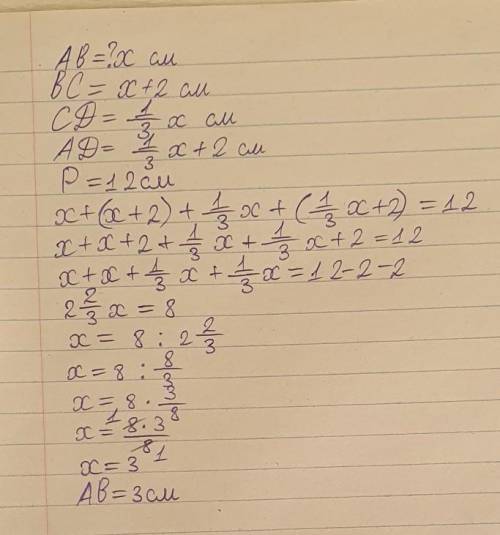 AB=?x см
BC= x+2 см
CD= 1/3 x см
AD= 1/3 x+2 см
P=12см
x+(x+2)+1/3 x+(1/3 x+2)=12
x+x+2+1/3 x+1/3 x+2=12
x+x+1/3 x+1/3 x=12-2-2
2 2/3 x=8
x= 8 : 2 2/3
x=8 : 8/3
x= 8 · 3/8
x= 8·3/8
x=3
AB=3см